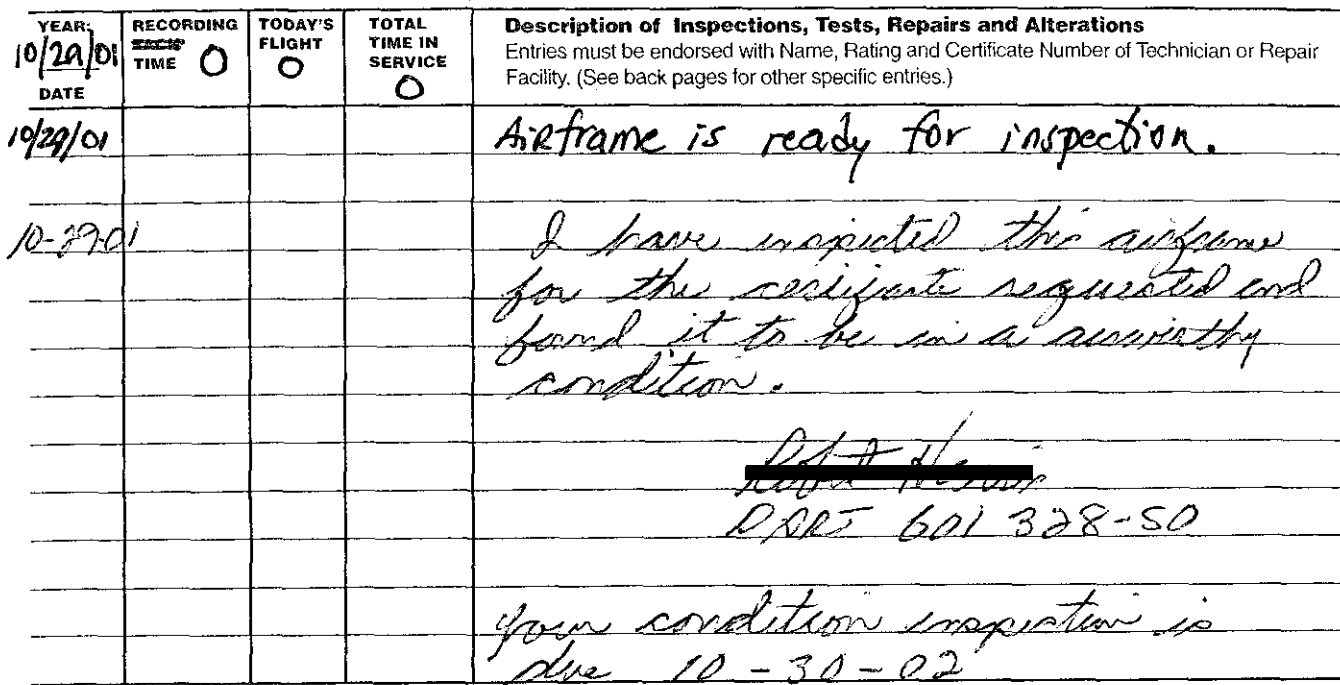 YEAR: RECORDING TODAY'S TOTAL Description of Inspections, Tests, Repairs and Alterations
10/29/01 TIME O FLIGHT TIME IN Entries must be endorsed with Name, Rating and Certificate Number of Technician or Repair
DATE O SERVICE Facility. (See back pages for other specific entries.)
O
10/29/01 Airframe is ready for inspection.
10-29-01 I have inspected this airframe
for the certificate requested and
found it to be in a airworthy
condition.
DART 601 328-50
Your condition inspection is
due 10-30-02